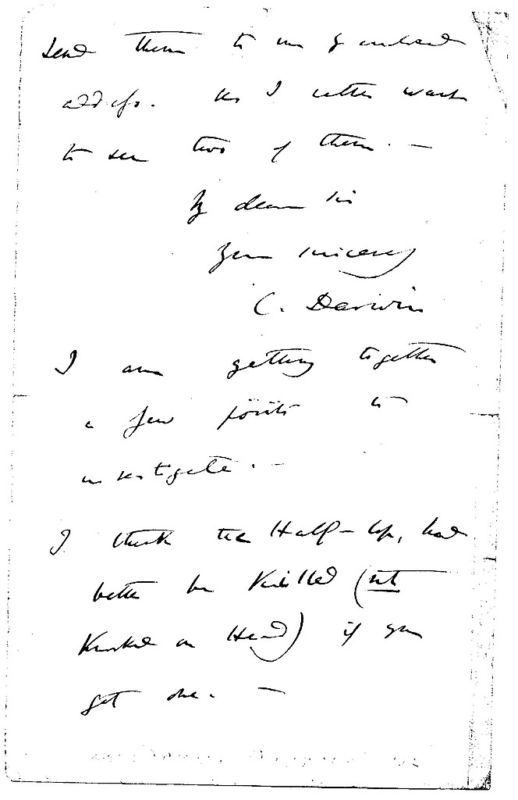 send them to me by enclosed
address. as I rather want
to see two of them. —
My dear Sir
Yours sincerely
C. Darwin
I am getting together
a few points to
investigate. —
I think the Half-lop, had
better be Killed (not
Knocked on Head) if you
get one. —